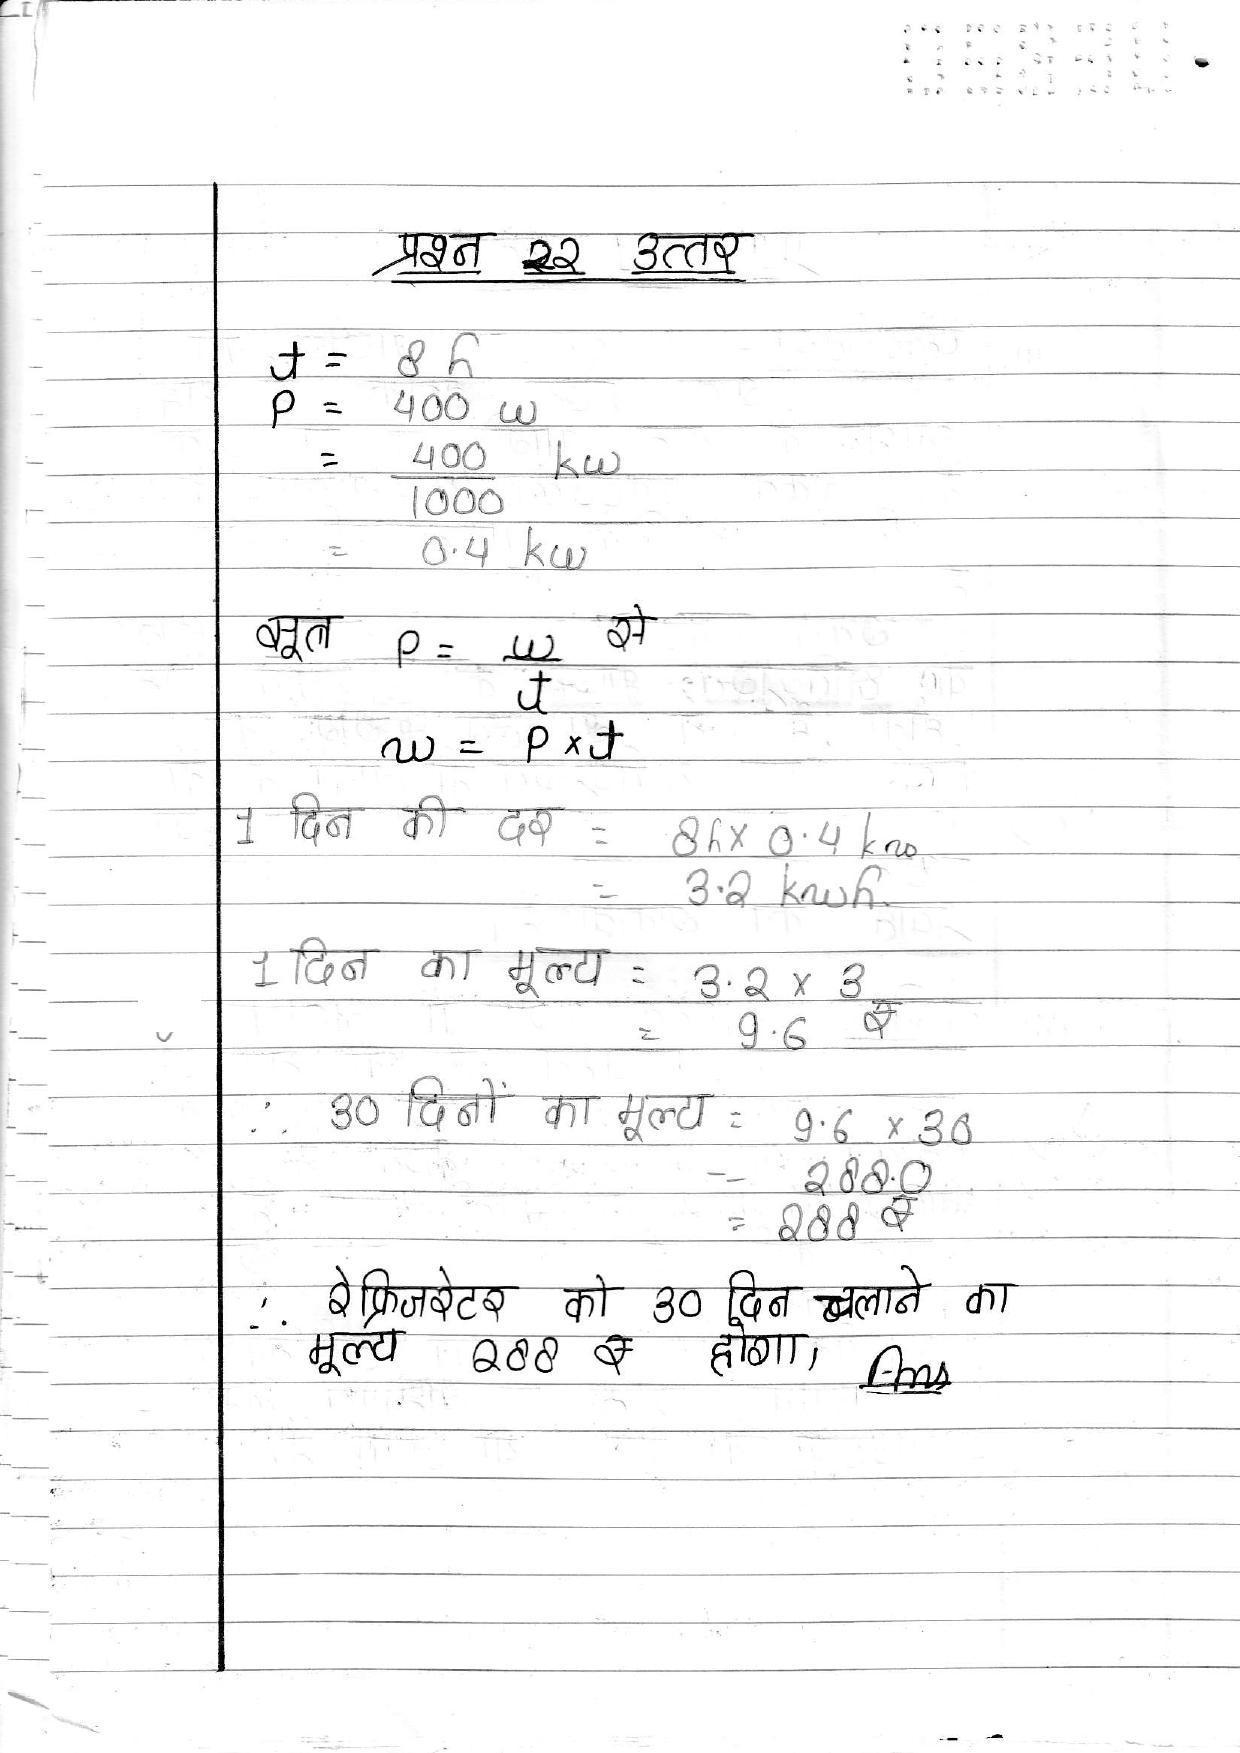 प्रश्न 22 उत्तर
t = 8 h
P = 400 w
= 400/1000 kw
= 0.4 kw
सूत्र P = w/t से
w = P × t
1 दिन की दर = 8h × 0.4 kw
= 3.2 kwh.
1 दिन का मूल्य = 3.2 × 3
= 9.6 ₹
∴ 30 दिनों का मूल्य = 9.6 × 30
= 288.0
= 288 ₹
∴ रेफ्रिजरेटर को 30 दिन चलाने का
मूल्य 288 ₹ होगा, Ans